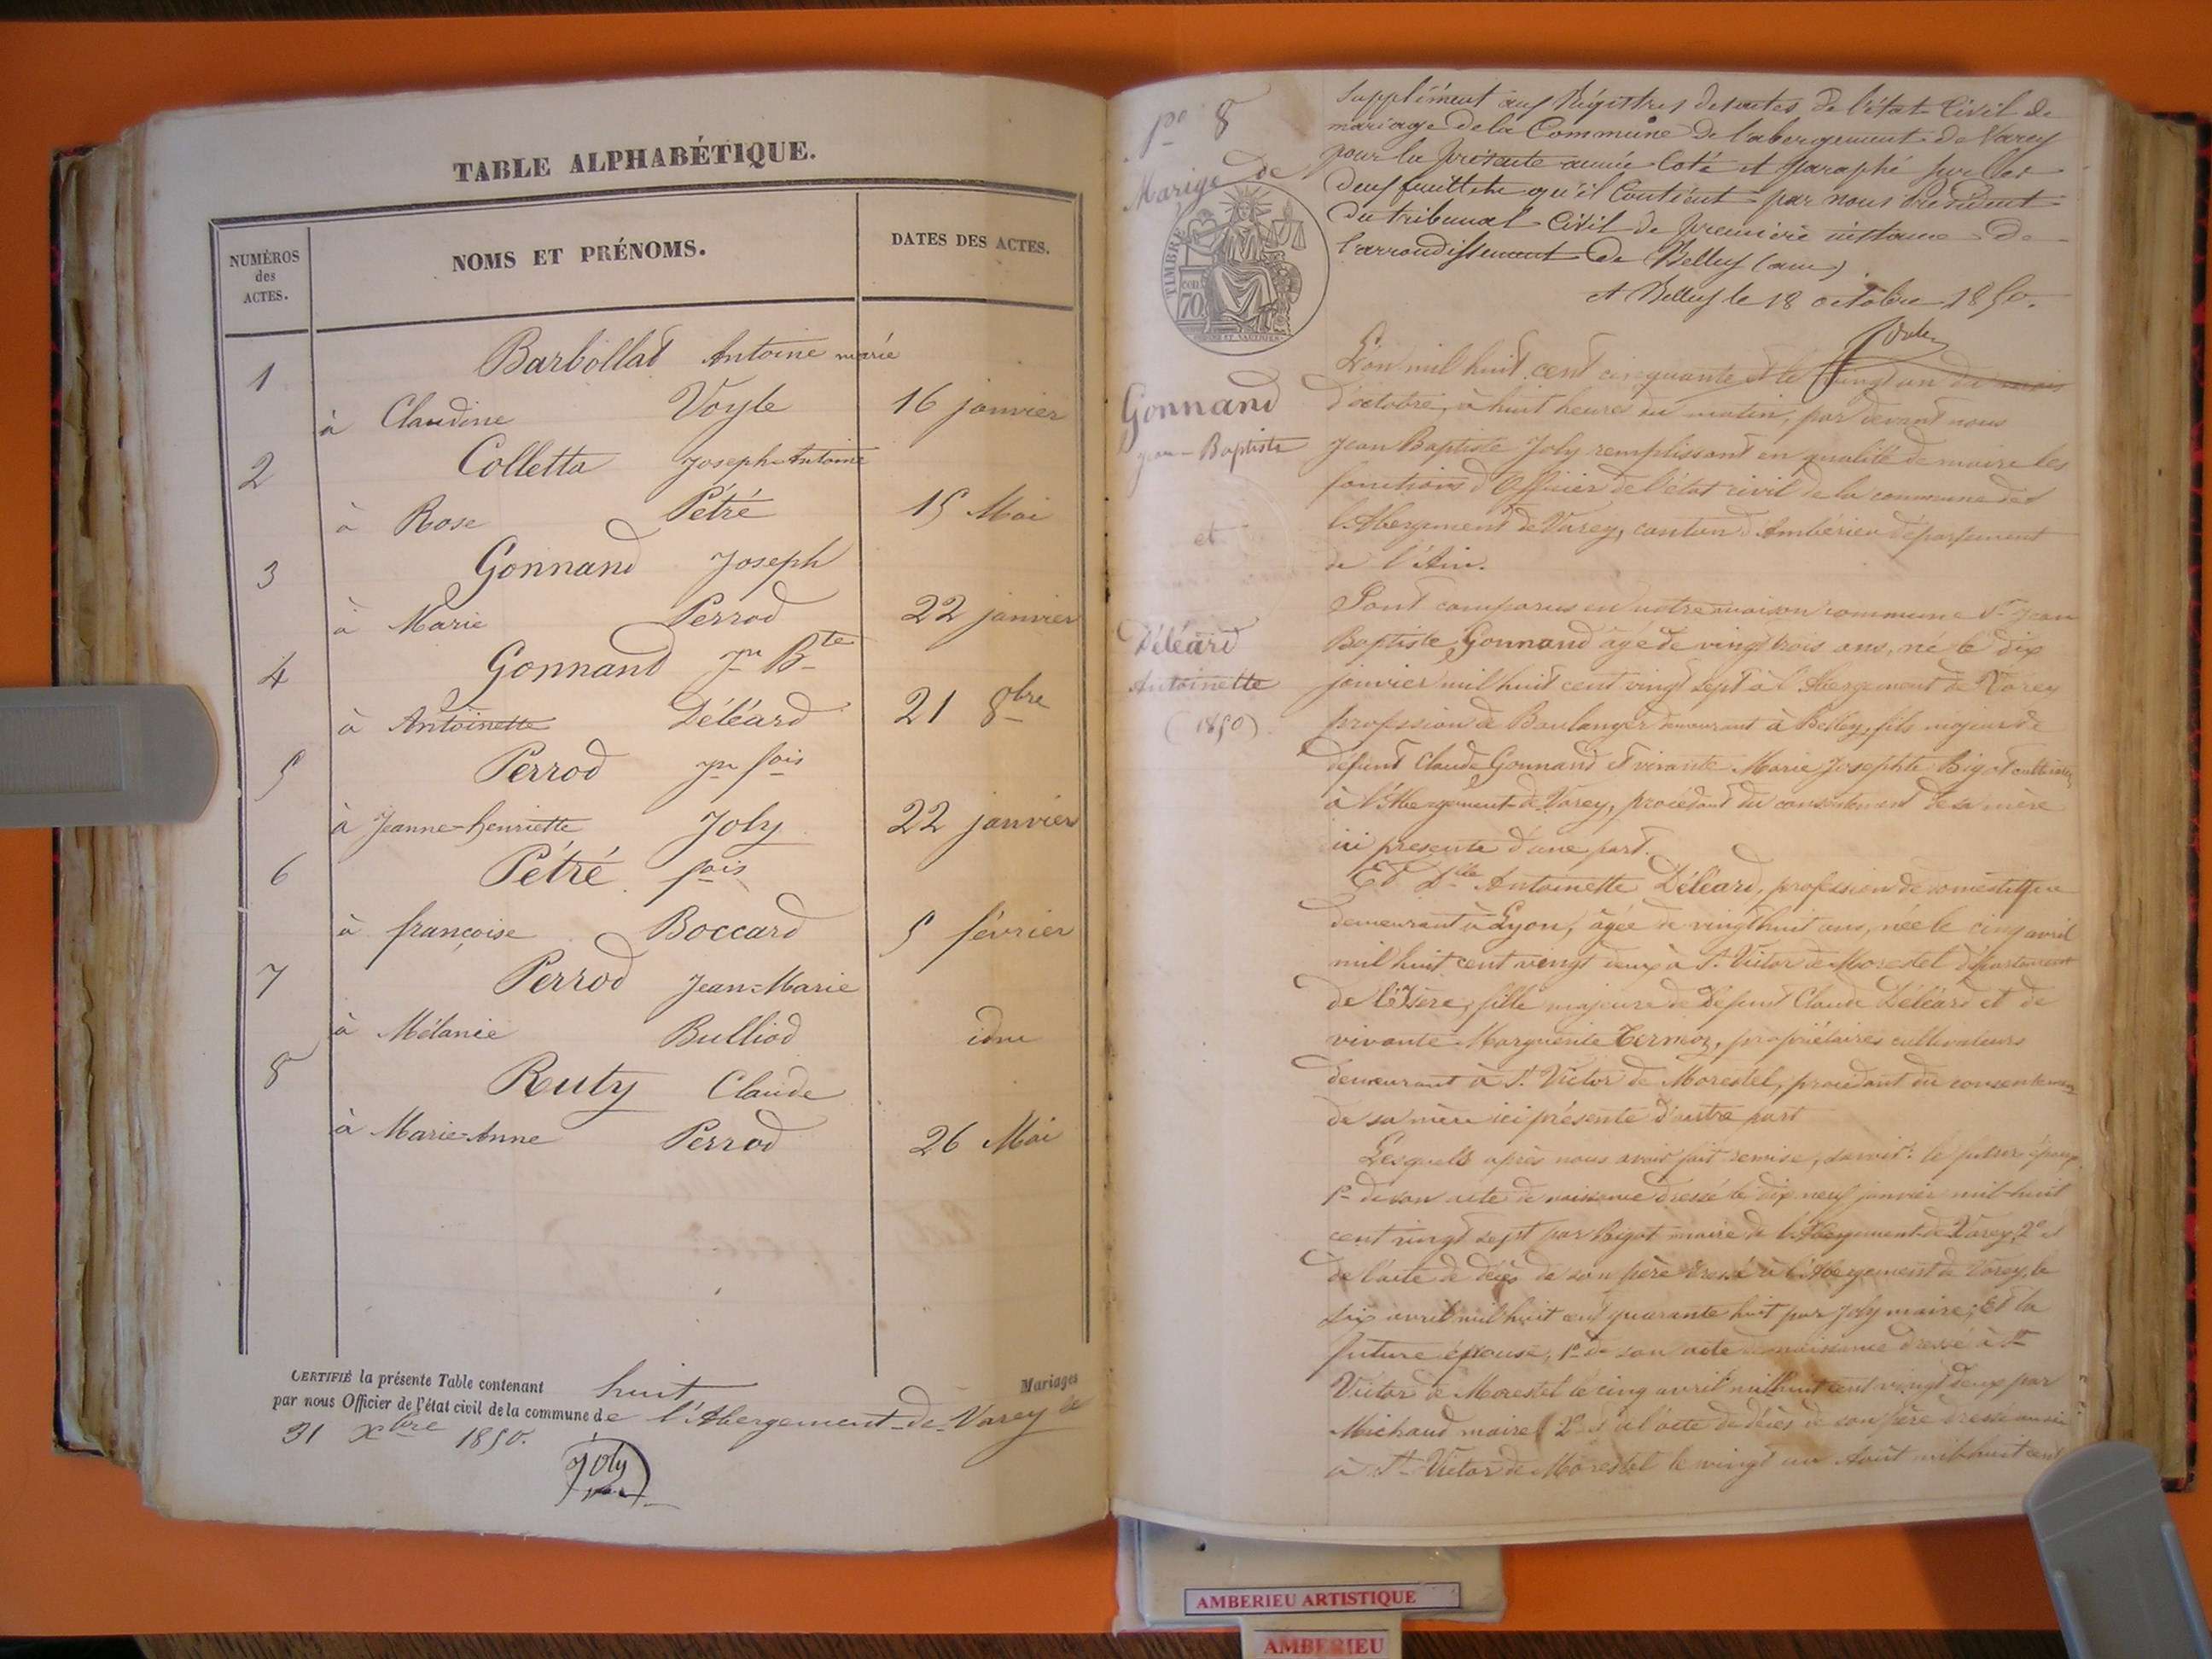 TABLE ALPHABÉTIQUE.
NUMÉROS
des
ACTES.
NOMS ET PRÉNOMS.
DATES DES ACTES.
1 Barbollat Antoine marie
à Claudine Voyle 16 janvier
2 Colletta Joseph-Antoine
à Rose Pétré 15 Mai
3 Gonnand Joseph
à Marie Perrod 22 janvier
4 Gonnand Jn Bte
à Antoinette Déléard 21 8bre
5 Perrod Jn fois
à Jeanne-henriette Joly 22 janvier
6 Pétré fois
à françoise Boccard 5 février
7 Perrod Jean-Marie
à Mélanie Bulliod idm
8 Ruty Claude
à Marie-Anne Perrod 26 Mai
CERTIFIÉ la présente Table contenant huit Mariages
par nous Officier de l'état civil de la commune de l'Abergement-de-Varey le
31 Xbre 1850.
Joly
No 8
Marige de
TIMBRE
70
Gonnand
Jean-Baptiste
et
Déléard
Antoinette
(1850)
Supplément aux Régistres des actes de l'état Civil de
mariage de la Commune de l'abergement de Varey
pour la présente année Coté et paraphé sur les
deux feuillets qu'il Contient par nous Président
du tribunal Civil de première instance de
l'arrondissement de Belley (ain)
A Belley le 18 octobre 1850.
L'an mil huit cent cinquante et le vingt un du mois
d'octobre, à huit heures du matin, par devant nous
Jean Baptiste Joly remplissant en qualité de maire les
fonctions d'Officier de l'état civil de la commune de
l'Abergement de Varey, canton d'Ambérieu département
de l'Ain.
Sont comparus en notre maison commune Sr Jean
Baptiste Gonnand âgé de vingt trois ans, né le dix
janvier mil huit cent vingt sept à l'Abergement de Varey
profession de Boulanger demeurant à Belley, fils majeur de
défunt Claude Gonnand et vivante Marie Josephte Bigot
à l'Abergement de Varey, procédant du consentement de sa mère
ici presente d'une part.
Et Dlle Antoinette Déléard, profession de domestique
demeurant à Lyon, âgée de vingt huit ans, née le cinq avril
mil huit cent vingt deux à St Victor de Morestel département
de l'Isère, fille majeure de Défunt Claude Déléard et de
vivante Marguerite Termoz, propriétaires cultivateurs
demeurant à St Victor de Morestel, procédant du consentement
de sa mère ici présente d'autre part
Lesquels après nous avoir fait remise, savoir: le futur époux
1o de son acte de naissance dressé le dix neuf janvier mil huit
cent vingt sept par Bigot maire de l'Abergement de Varey, 2o et
de l'acte de décès de son père dressé à l'Abergement de Varey, le
six avril mil huit cent quarante huit par Joly maire; Et la
future épouse, 1o de son acte de naissance dressé à St
Victor de Morestel le cinq avril mil huit cent vingt deux par
Michaud maire 2o et de l'acte de décès de son père dressé aussi
à St Victor de Morestel le vingt un Août mil huit cent
AMBERIEU ARTISTIQUE
AMBERIEU